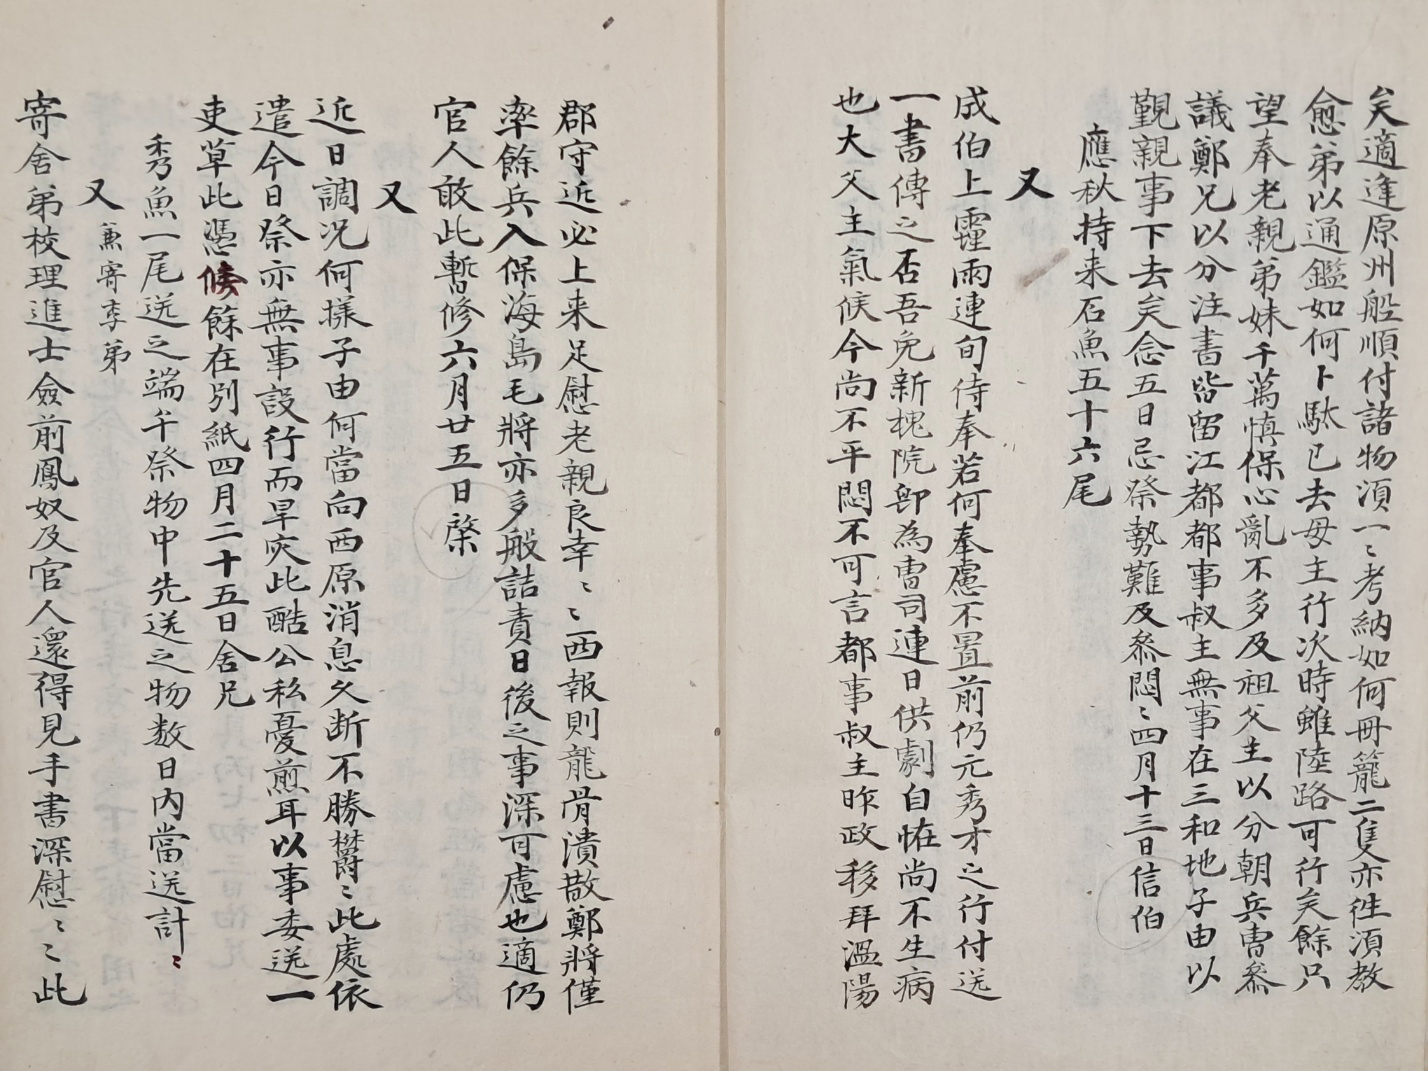 矣適逢原州船順付諸物湏一〻考納如何冊籠二隻亦徃湏敎
愈弟以通鑑如何卜駄已去母主行次時雖陸路可行矣餘只
望奉老親弟妹千萬慎保心亂不多及祖父主以分朝兵曺叅
議鄭兄以分注書皆留江都都事叔主無事在三和地子由以
覲親事下去矣念五日忌祭勢難及叅悶〻四月十三日信伯
應秋持来石魚五十六尾
又
成伯上霾雨連旬侍奉若何奉慮不置前仍元秀才之行付送
一書傳之否吾免新槐院卽為曺司連日供劇自恠尚不生病
也大父主氣候今尚不平悶不可言都事叔主昨政移拜溫陽
郡守近必上来足慰老親良幸〻〻西報則龍骨潰散鄭將僅
率餘兵入保海島毛將亦多般詰責日後之事深可慮也適仍
官人敢此暫修六月廿五日棨
又
近日調況何㨾子由何當向西原消息久断不勝欝〻此處依
遣今日祭亦無事設行而旱灾此酷公私憂煎耳以事委送一
吏草此憑候餘在別紙四月二十五日舍兄
秀魚一尾送之端午祭物中先送之物数日內當送計〻
又 兼寄季弟
寄舍弟校理進士僉前鳳奴及官人還得見手書深慰〻〻此